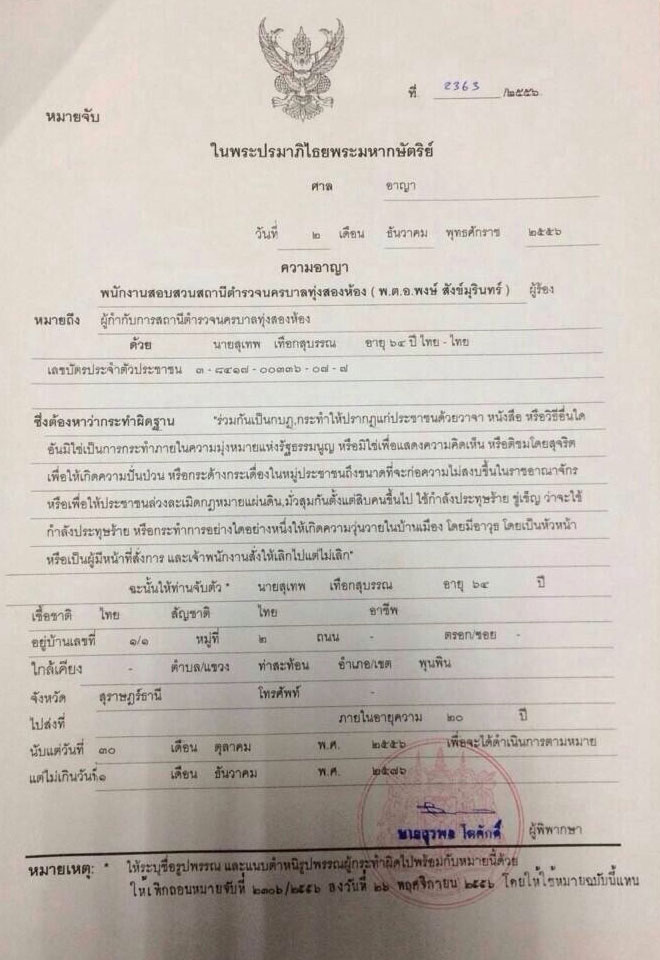 ที่ 2363 /๒๕๕๖
หมายจับ
ในพระปรมาภิไธยพระมหากษัตริย์
ศาล อาญา
วันที่ ๒ เดือน ธันวาคม พุทธศักราช ๒๕๕๖
ความอาญา
พนักงานสอบสวนสถานีตำรวจนครบาลทุ่งสองห้อง ( พ.ต.อ.พงษ์ สังข์มุรินทร์ ) ผู้ร้อง
หมายถึง ผู้กำกับการสถานีตำรวจนครบาลทุ่งสองห้อง
ด้วย นายสุเทพ เทือกสุบรรณ อายุ ๖๔ ปี ไทย - ไทย
เลขบัตรประจำตัวประชาชน ๓ - ๘๔๑๗ - ๐๐๓๓๖ - ๐๗ - ๗
ซึ่งต้องหาว่ากระทำผิดฐาน "ร่วมกันเป็นกบฏ,กระทำให้ปรากฏแก่ประชาชนด้วยวาจา หนังสือ หรือวิธีอื่นใด
อันมิใช่เป็นการกระทำภายในความมุ่งหมายแห่งรัฐธรรมนูญ หรือมิใช่เพื่อแสดงความคิดเห็น หรือติชมโดยสุจริต
เพื่อให้เกิดความปั่นป่วน หรือกระด้างกระเดื่องในหมู่ประชาชนถึงขนาดที่จะก่อความไม่สงบขึ้นในราชอาณาจักร
หรือเพื่อให้ประชาชนล่วงละเมิดกฎหมายแผ่นดิน,มั่วสุมกันตั้งแต่สิบคนขึ้นไป ใช้กำลังประทุษร้าย ขู่เข็ญ ว่าจะใช้
กำลังประทุษร้าย หรือกระทำการอย่างใดอย่างหนึ่งให้เกิดความวุ่นวายในบ้านเมือง โดยมีอาวุธ โดยเป็นหัวหน้า
หรือเป็นผู้มีหน้าที่สั่งการ และเจ้าพนักงานสั่งให้เลิกไปแต่ไม่เลิก"
ฉะนั้นให้ท่านจับตัว * นายสุเทพ เทือกสุบรรณ อายุ ๖๔ ปี
เชื้อชาติ ไทย สัญชาติ ไทย อาชีพ
อยู่บ้านเลขที่ ๑/๑ หมู่ที่ ๒ ถนน - ตรอก/ซอย -
ใกล้เคียง - ตำบล/แขวง ท่าสะท้อน อำเภอ/เขต พุนพิน
จังหวัด สุราษฎร์ธานี โทรศัพท์ -
ไปส่งที่ ภายในอายุความ ๒๐ ปี
นับแต่วันที่ ๓๐ เดือน ตุลาคม พ.ศ. ๒๕๕๖ เพื่อจะได้ดำเนินการตามหมาย
แต่ไม่เกินวันที่ ๑ เดือน ธันวาคม พ.ศ. ๒๕๗๖
นายสุวพล โตศักดิ์ ผู้พิพากษา
หมายเหตุ: * ให้ระบุชื่อรูปพรรณ และแนบตำหนิรูปพรรณผู้กระทำผิดไปพร้อมกับหมายนี้ด้วย
ให้เพิกถอนหมายจับที่ ๒๓๐๖/๒๕๕๖ ลงวันที่ ๒๖ พฤศจิกายน ๒๕๕๖ โดยให้ใช้หมายฉบับนี้แทน